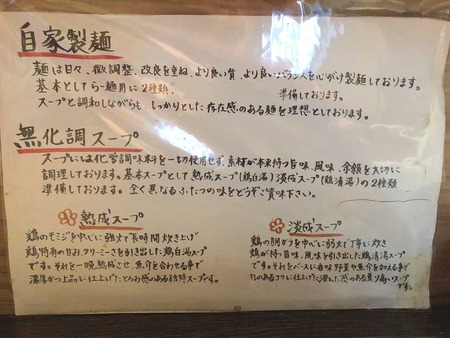 自家製麺
麺は日々、微調整、改良を重ね、より良い質、より良いバランスを心がけ製麺しております。
基本としてらー麺用に2種類、
準備しております。
スープと調和しながらも、しっかりとした存在感のある麺を理想としております。
無化調スープ
スープには化学調味料を一切使用せず、素材が本来持つ旨味、風味、余韻を大切に
調理しております。基本スープとして熟成スープ(鶏白湯)淡成スープ(鶏清湯)の2種類
準備しております。全く異なるふたつの味をどうぞご賞味下さい。
熟成スープ
鶏のモミジを中心に強火で長時間炊き上げ
鶏特有の甘み、クリーミーさを引き出した鶏白湯スープ
です。それを一晩熟成させ、魚介を合わせる事で
濃厚かつ上品に仕上げたとろみ感のある独特スープです。
淡成スープ
鶏の胴ガラを中心に弱火で丁寧に炊き
鶏が持つ旨味、風味を引き出した鶏清湯スープ
です。それをベースに香味野菜や魚介を加える事で
のあるコクに仕上げた澄んだ感のある薫り高いスープです。